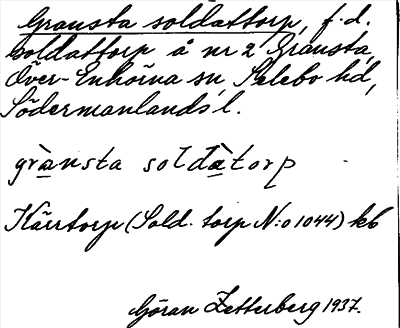 Gransta soldattorp, f.d.
soldattorp å nr 2 Gransta,
Över-Enhörna sn Selebo hd,
Södermanlands l.
grànsta soldàtorp
Kärrtorp (Sold. torp N:o 1044) kb
Göran Zetterberg 1937.